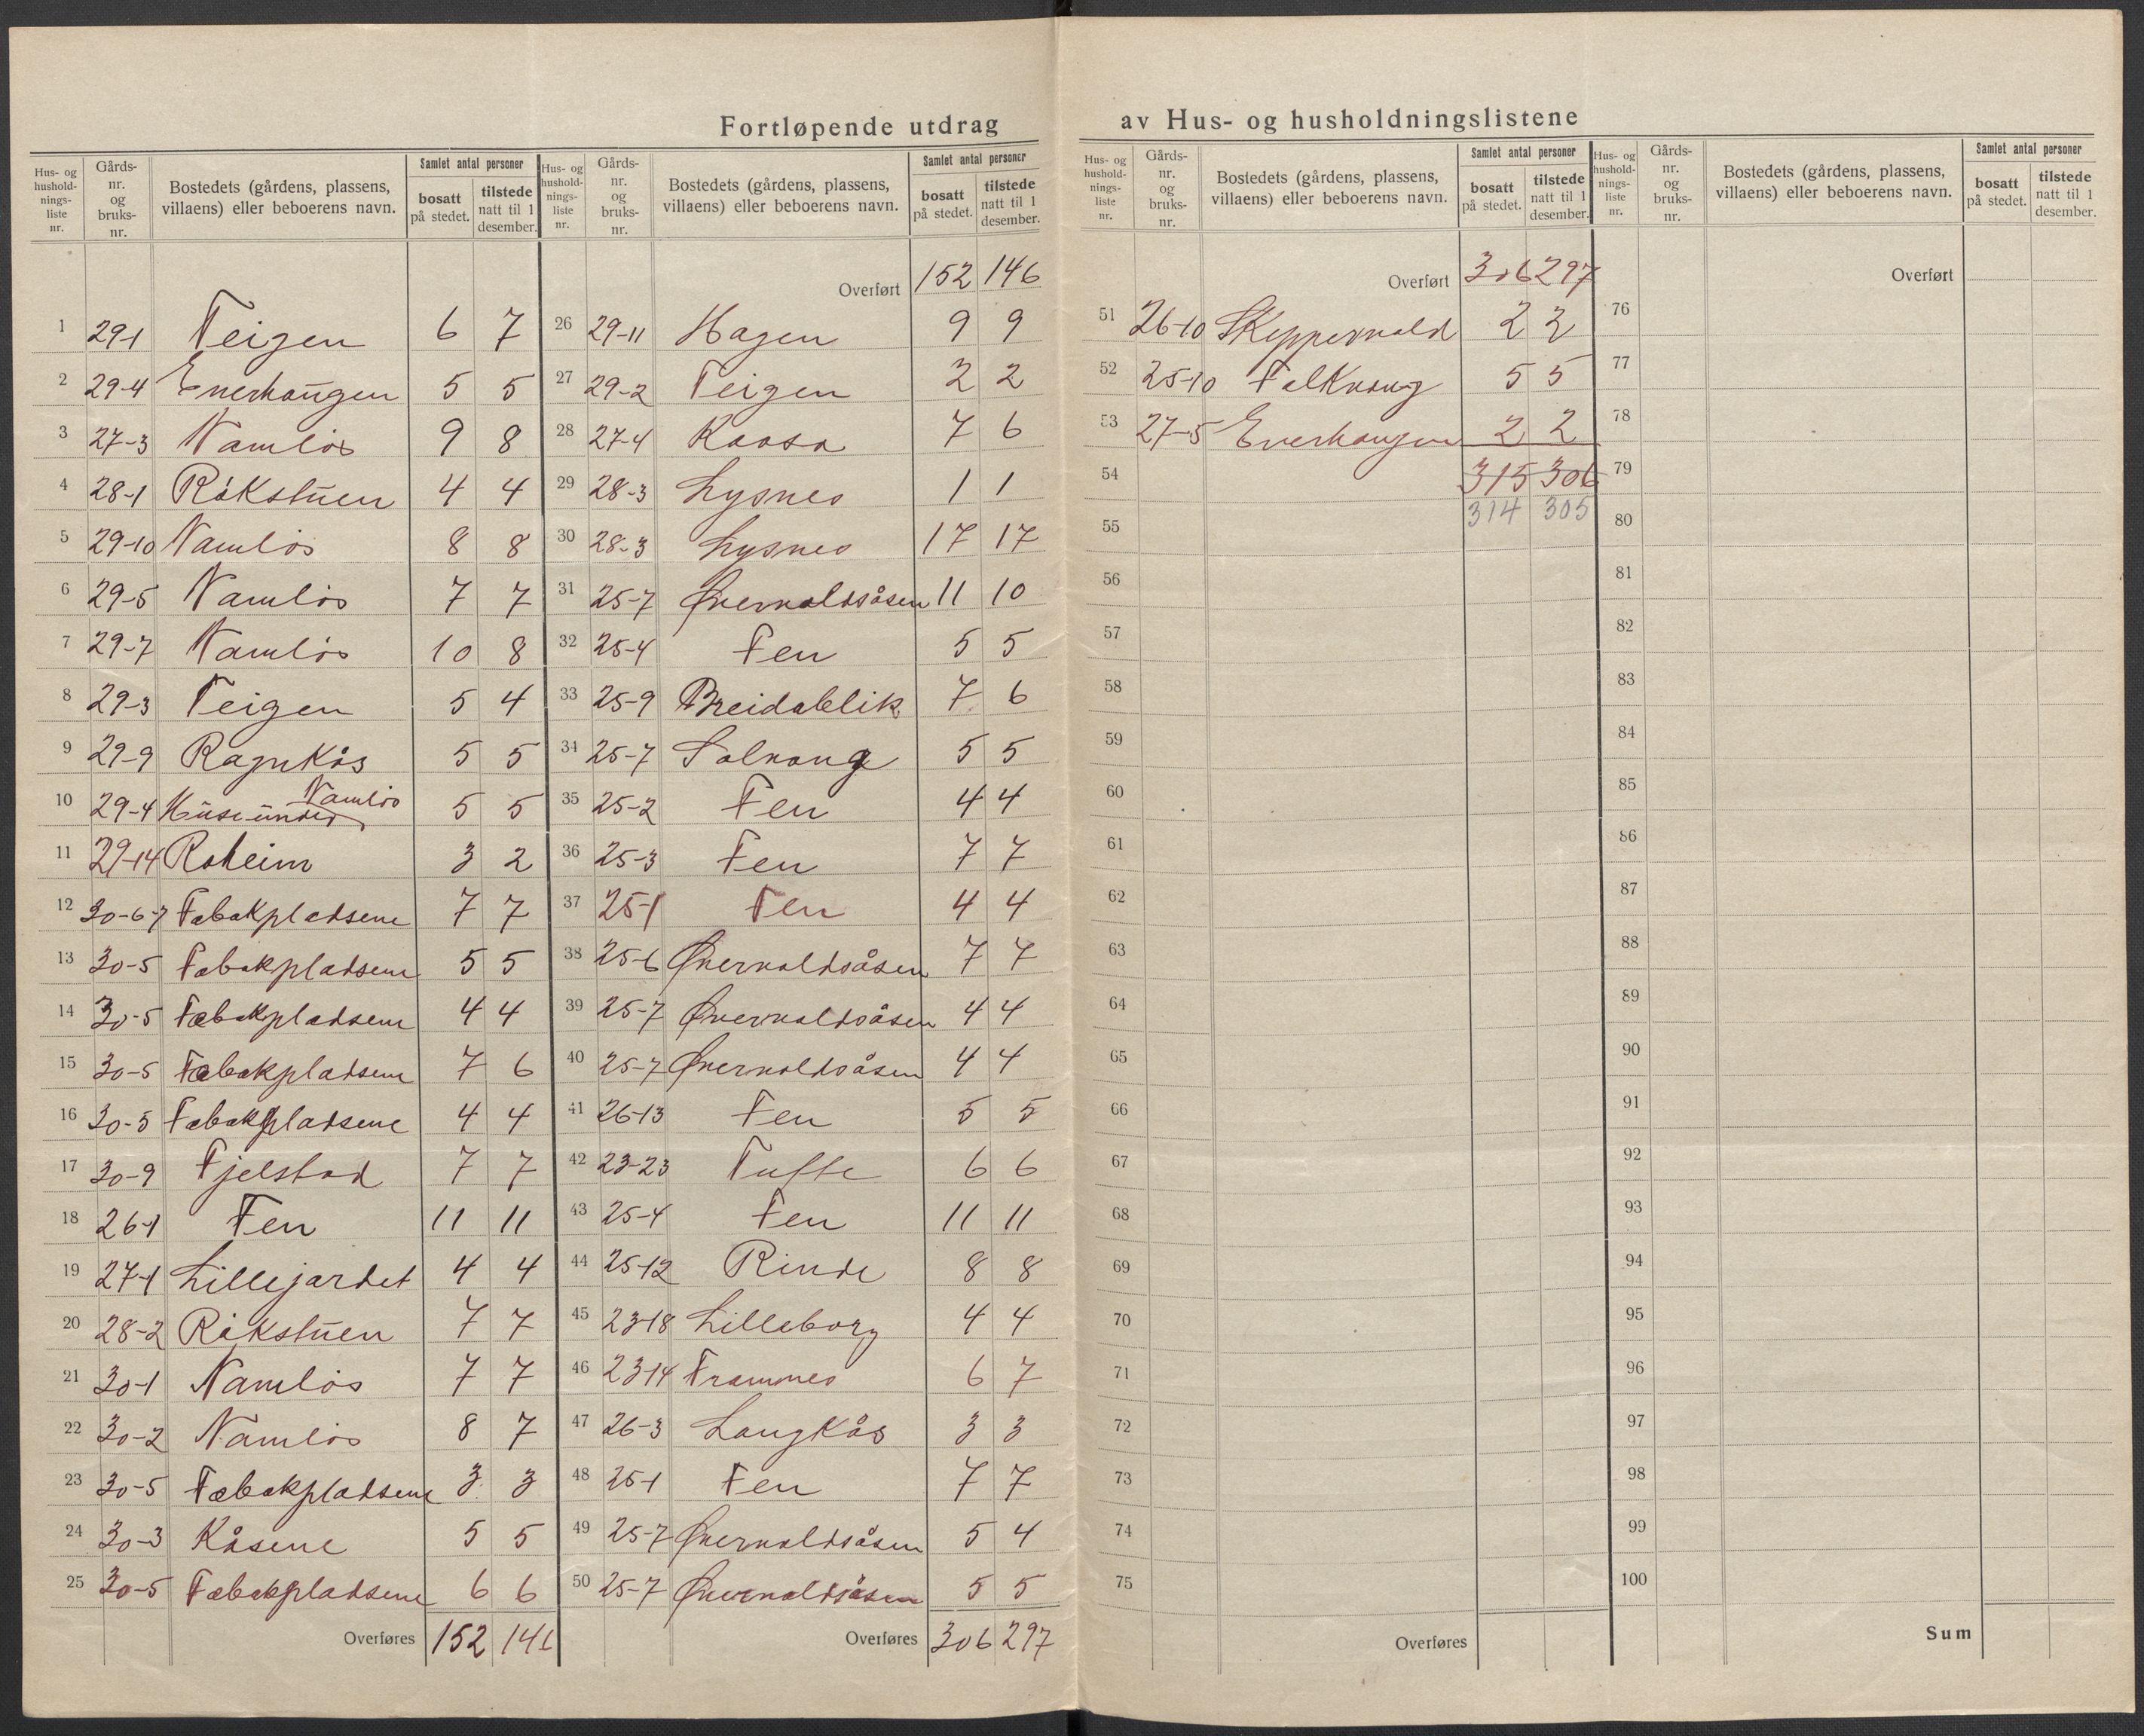 Fortløpende utdrag av Hus- og husholdningslistene
Hus- og husholdningsliste nr. Gårds-nr. og bruks-nr. Bostedets (gårdens, plassens, villaens) eller beboerens navn. Samlet antal personer bosatt på stedet. tilstede natt til 1 desember.
1 29-1 Teigen 6 7
2 29-4 Enerhaugen 5 5
3 27-3 Namløs 9 8
4 28-1 Råkstuen 4 4
5 29-10 Namløs 8 8
6 29-5 Namløs 7 7
7 29-7 Namløs 10 8
8 29-3 Teigen 5 4
9 29-9 Ragnkås 5 5
10 29-4 Huse under Namløs 5 5
11 29-14 Roheim 3 2
12 30-6-7 Tobakpladsene 7 7
13 30-5 Tobakpladsene 5 5
14 30-5 Tobakpladsene 4 4
15 30-5 Tobakpladsene 7 6
16 30-5 Tobakpladsene 4 4
17 30-9 Fjelstad 7 7
18 26-1 Fen 11 11
19 27-1 Lillejordet 4 4
20 28-2 Råkstuen 7 7
21 30-1 Namløs 7 7
22 30-2 Namløs 8 7
23 30-5 Tobakpladsene 3 3
24 30-3 Kåsene 5 5
25 30-5 Tobakpladsene 6 6
Overføres 152 146
Hus- og husholdningsliste nr. Gårds-nr. og bruks-nr. Bostedets (gårdens, plassens, villaens) eller beboerens navn. Samlet antal personer bosatt på stedet. tilstede natt til 1 desember.
Overført 152 146
26 29-11 Hagen 9 9
27 29-2 Teigen 2 2
28 27-4 Kaasa 7 6
29 28-3 Lysnes 1 1
30 28-3 Lysnes 17 17
31 25-7 Øvervoldsåsen 11 10
32 25-4 Fen 5 5
33 25-9 Breidablik 7 6
34 25-7 Solvang 5 5
35 25-2 Fen 4 4
36 25-3 Fen 7 7
37 25-1 Fen 4 4
38 25-6 Øvervoldsåsen 7 7
39 25-7 Øvervoldsåsen 4 4
40 25-7 Øvervoldsåsen 4 4
41 26-13 Fen 5 5
42 23-23 Tufte 6 6
43 25-4 Fen 11 11
44 25-12 Rinde 8 8
45 23-18 Lilleborg 4 4
46 23-14 Framnes 6 7
47 26-3 Langkås 3 3
48 25-1 Fen 7 7
49 25-7 Øvervoldsåsen 5 4
50 25-7 Øvervoldsåsen 5 5
Overføres 306 297
Hus- og husholdningsliste nr. Gårds-nr. og bruks-nr. Bostedets (gårdens, plassens, villaens) eller beboerens navn. Samlet antal personer bosatt på stedet. tilstede natt til 1 desember.
Overført 306 297
51 26-10 Skeppervold 2 2
52 25-10 Falkvang 5 5
53 27-5 Enerhaugen 2 2
54 315 306
55 314 305
56
57
58
59
60
61
62
63
64
65
66
67
68
69
70
71
72
73
74
75
Overføres
Hus- og husholdningsliste nr. Gårds-nr. og bruks-nr. Bostedets (gårdens, plassens, villaens) eller beboerens navn. Samlet antal personer bosatt på stedet. tilstede natt til 1 desember.
Overført
76
77
78
79
80
81
82
83
84
85
86
87
88
89
90
91
92
93
94
95
96
97
98
99
100
Sum